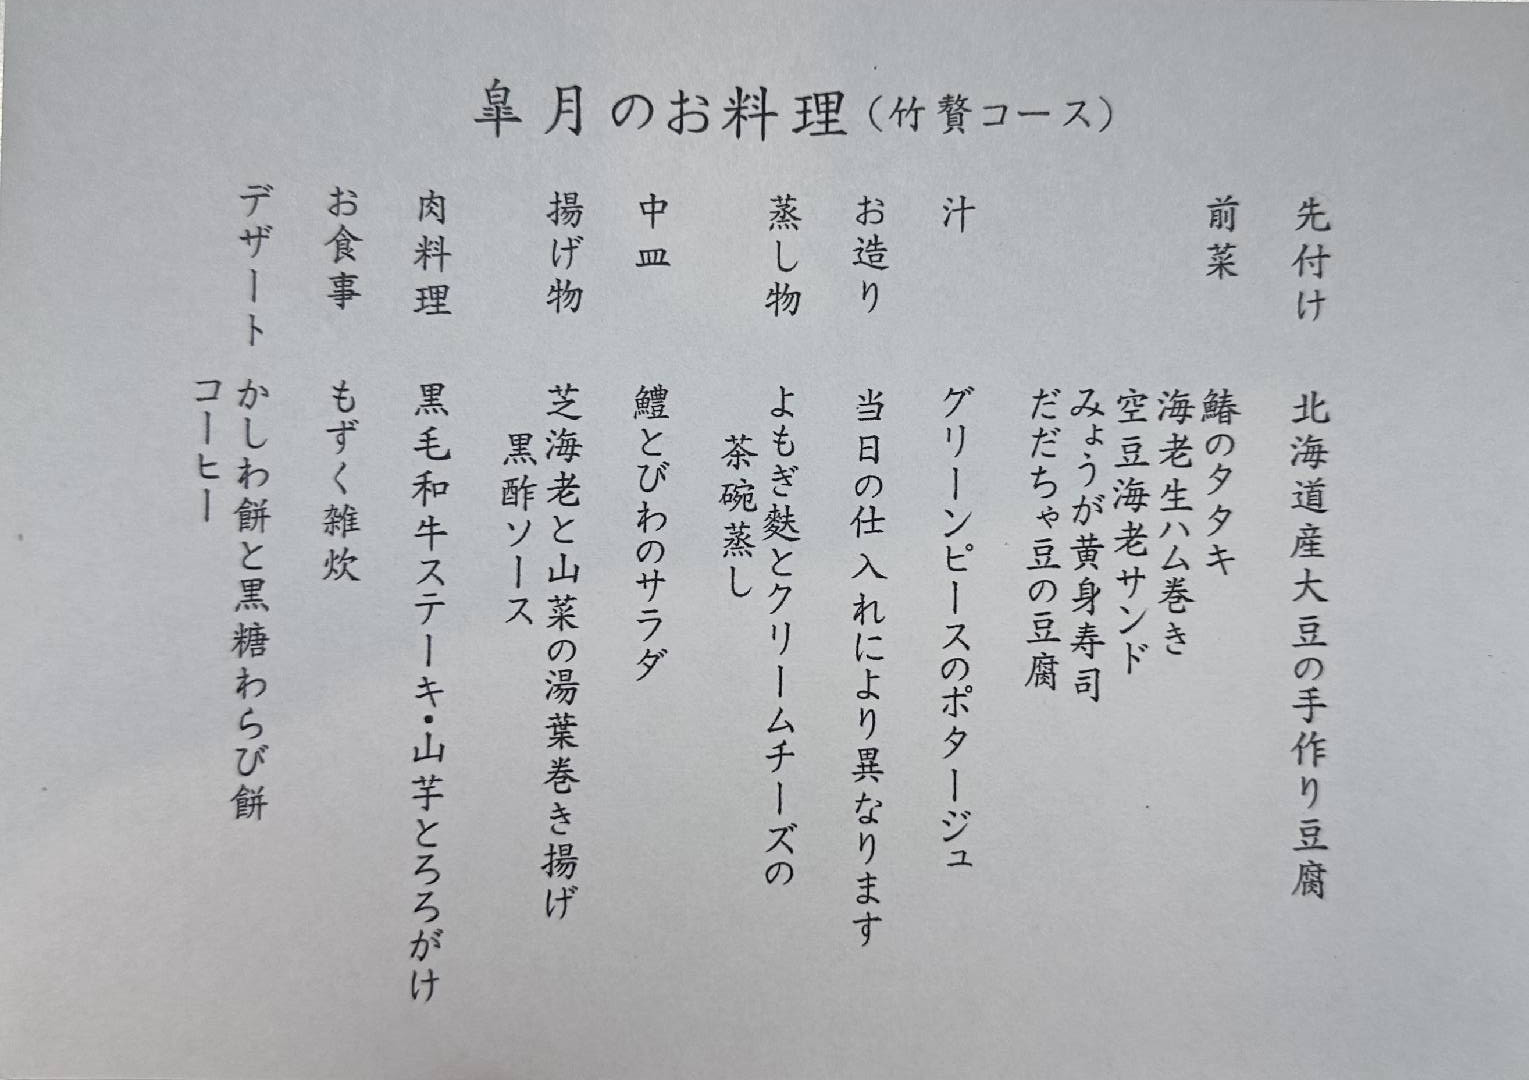 皐月のお料理（竹贅コース）
先付け　北海道産大豆の手作り豆腐
前菜　鰆のタタキ
海老生ハム巻き
空豆海老サンド
みょうが黄身寿司
だだちゃ豆の豆腐
汁　グリーンピースのポタージュ
お造り　当日の仕入れにより異なります
蒸し物　よもぎ麩とクリームチーズの
茶碗蒸し
中皿　鱧とびわのサラダ
揚げ物　芝海老と山菜の湯葉巻き揚げ
黒酢ソース
肉料理　黒毛和牛ステーキ・山芋とろろがけ
お食事　もずく雑炊
デザート　かしわ餅と黒糖わらび餅
コーヒー